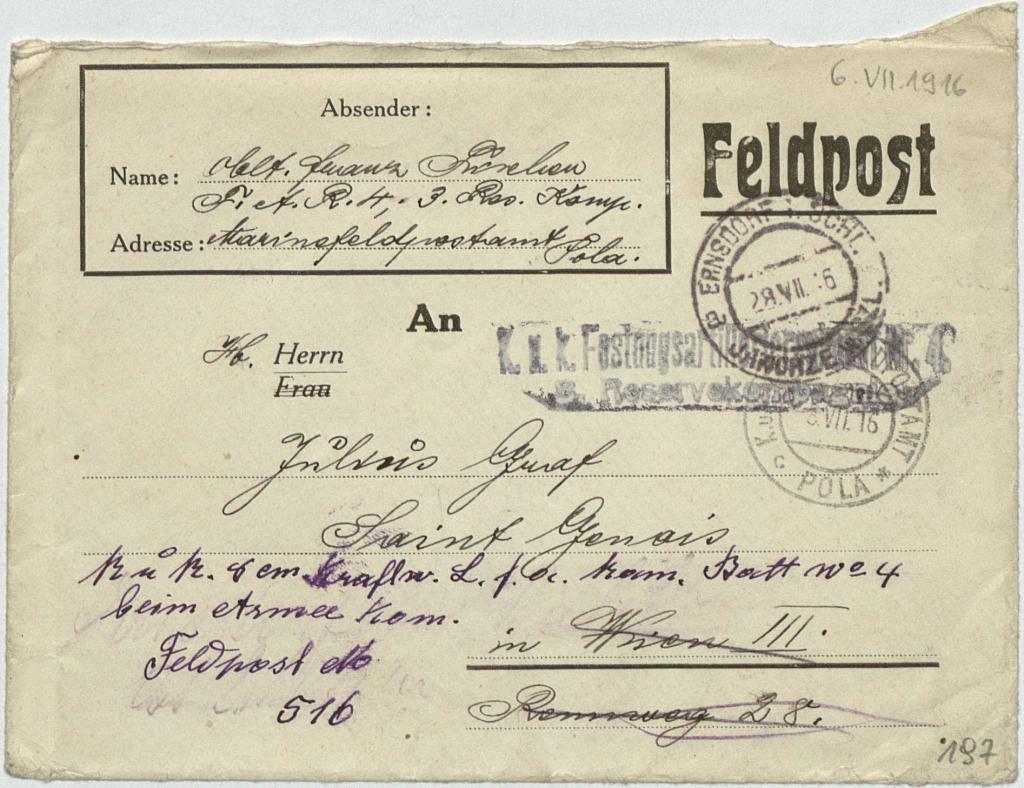 6.VII.1916
Absender:
Name: Oblt. Franz
F. A. R. 4, 3. Res. Komp.
Adresse: Marinefeldpostamt
Pola.
Feldpost
ERNSDORF SCHL.
28.VII.16
JAWORZE
An
K. u. k. Festungsartillerie Nr. 4
3. Reservekompagnie
H. Herrn
Frau
K.u.K. POSTAMT
VII.16
c POLA *
Julius Graf
Saint Genois
k u k. 8 cm Kraftw. L. f. a. kan. Batt No 4
beim Armee Kom.
in Wien III.
Feldpost No
516
Rennweg 28.
197